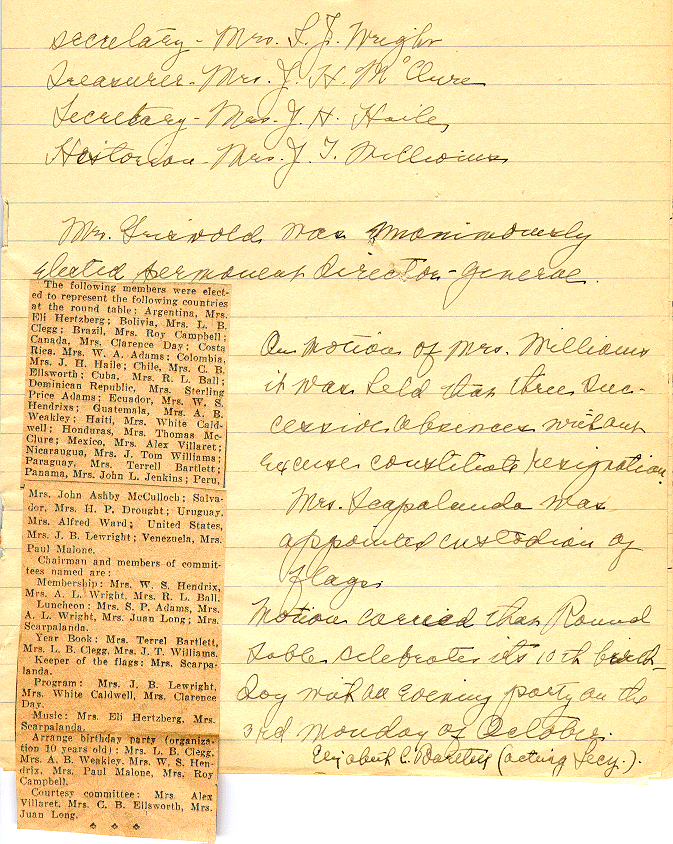 Secretary - Mrs. L. J. Wright
Treasurer - Mrs. J. H. McClure
Secretary - Mrs. J. H. Haile,
Historian - Mrs. J. T. Williams
Mrs. Griswold was unanimously
elected permanent Director-General.
The following members were elect-
ed to represent the following countries
at the round table: Argentina, Mrs.
Eli Hertzberg; Bolivia, Mrs. L. B.
Clegg; Brazil, Mrs. Roy Campbell;
Canada, Mrs. Clarence Day; Costa
Rica, Mrs. W. A. Adams; Colombia,
Mrs. J. H. Haile; Chile, Mrs. C. B.
Ellsworth; Cuba, Mrs. R. L. Ball;
Dominican Republic, Mrs. Sterling
Price Adams; Ecuador, Mrs. W. S.
Hendrixs; Guatemala, Mrs. A. B.
Weakley; Haiti, Mrs. White Cald-
well; Honduras, Mrs. Thomas Mc-
Clure; Mexico, Mrs. Alex Villaret;
Nicaraugua, Mrs. J. Tom Williams;
Paraguay, Mrs. Terrell Bartlett;
Panama, Mrs. John L. Jenkins; Peru,
Mrs. John Ashby McCulloch; Salva-
dor, Mrs. H. P. Drought; Uruguay,
Mrs. Alfred Ward; United States,
Mrs. J. B. Lewright; Venezuela, Mrs.
Paul Malone.
Chairman and members of commit-
tees named are:
Membership: Mrs. W. S. Hendrix,
Mrs. A. L. Wright, Mrs. R. L. Ball.
Luncheon: Mrs. S. P. Adams, Mrs.
A. L. Wright, Mrs. Juan Long; Mrs.
Scarpalanda.
Year Book: Mrs. Terrel Bartlett,
Mrs. L. B. Clegg, Mrs. J. T. Williams.
Keeper of the flags: Mrs. Scarpa-
landa.
Program: Mrs. J. B. Lewright,
Mrs. White Caldwell, Mrs. Clarence
Day.
Music: Mrs. Eli Hertzberg, Mrs.
Scarpalanda.
Arrange birthday party (organiza-
tion 10 years old): Mrs. L. B. Clegg,
Mrs. A. B. Weakley, Mrs. W. S. Hen-
drix, Mrs. Paul Malone, Mrs. Roy
Campbell.
Courtesy committee: Mrs. Alex
Villaret, Mrs. C. B. Ellsworth, Mrs.
Juan Long.
On motion of Mrs. Williams
it was held that three suc-
cessive absences without
excuse constitute resignation.
Mrs. Scapalanda was
appointed custodian of
flags.
Motion carried that Round
Table celebrates its 10th birth-
day with an evening party on the
3rd Monday of October.
Elizabeth C. Bartlett (acting Secy.).